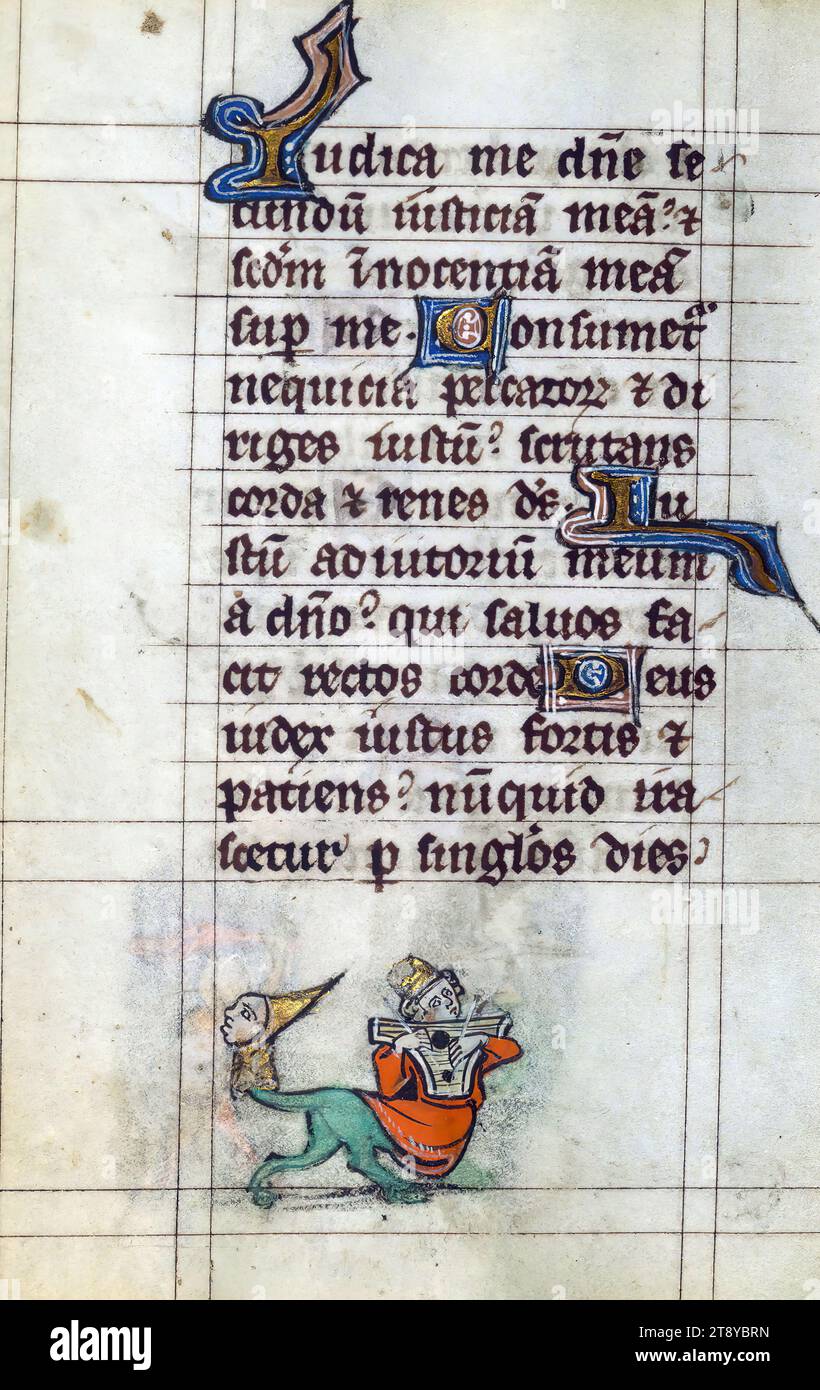 Iudica me dñe se
cundū iusticiā meā? ⁊
scd̄m īnocentiā meā
sup me. Consumet᷑
nequicia peccatoꝝ ⁊ di
riges iustū? scrutans
corda ⁊ renes d̄s. Iu
stū adiutoriū meum
a dño? qui saluos fa
cit rectos corde Deus
iudex iustus fortis ⁊
patiens? nūquid ira
scetur p singl̓os dies?
alamy
alamy
alamy
a
a
a
alamy
Image ID: 2T8YBRN
www.alamy.com